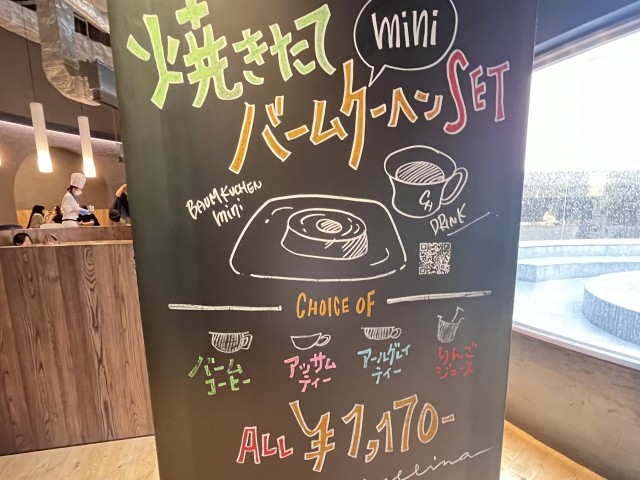 焼きたて
mini
バームクーヘンSET
BAUMKUCHEN
mini
DRINK
CHOICE OF
バーム
コーヒー
アッサム
ティー
アールグレイ
ティー
りんご
ジュース
ALL ¥1,170-